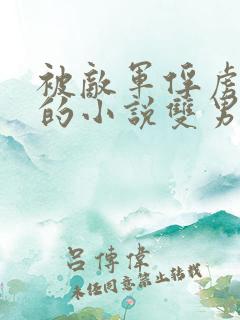 被敵軍俘虜
的小說雙男
呂傳偉
未經同意禁止轉載